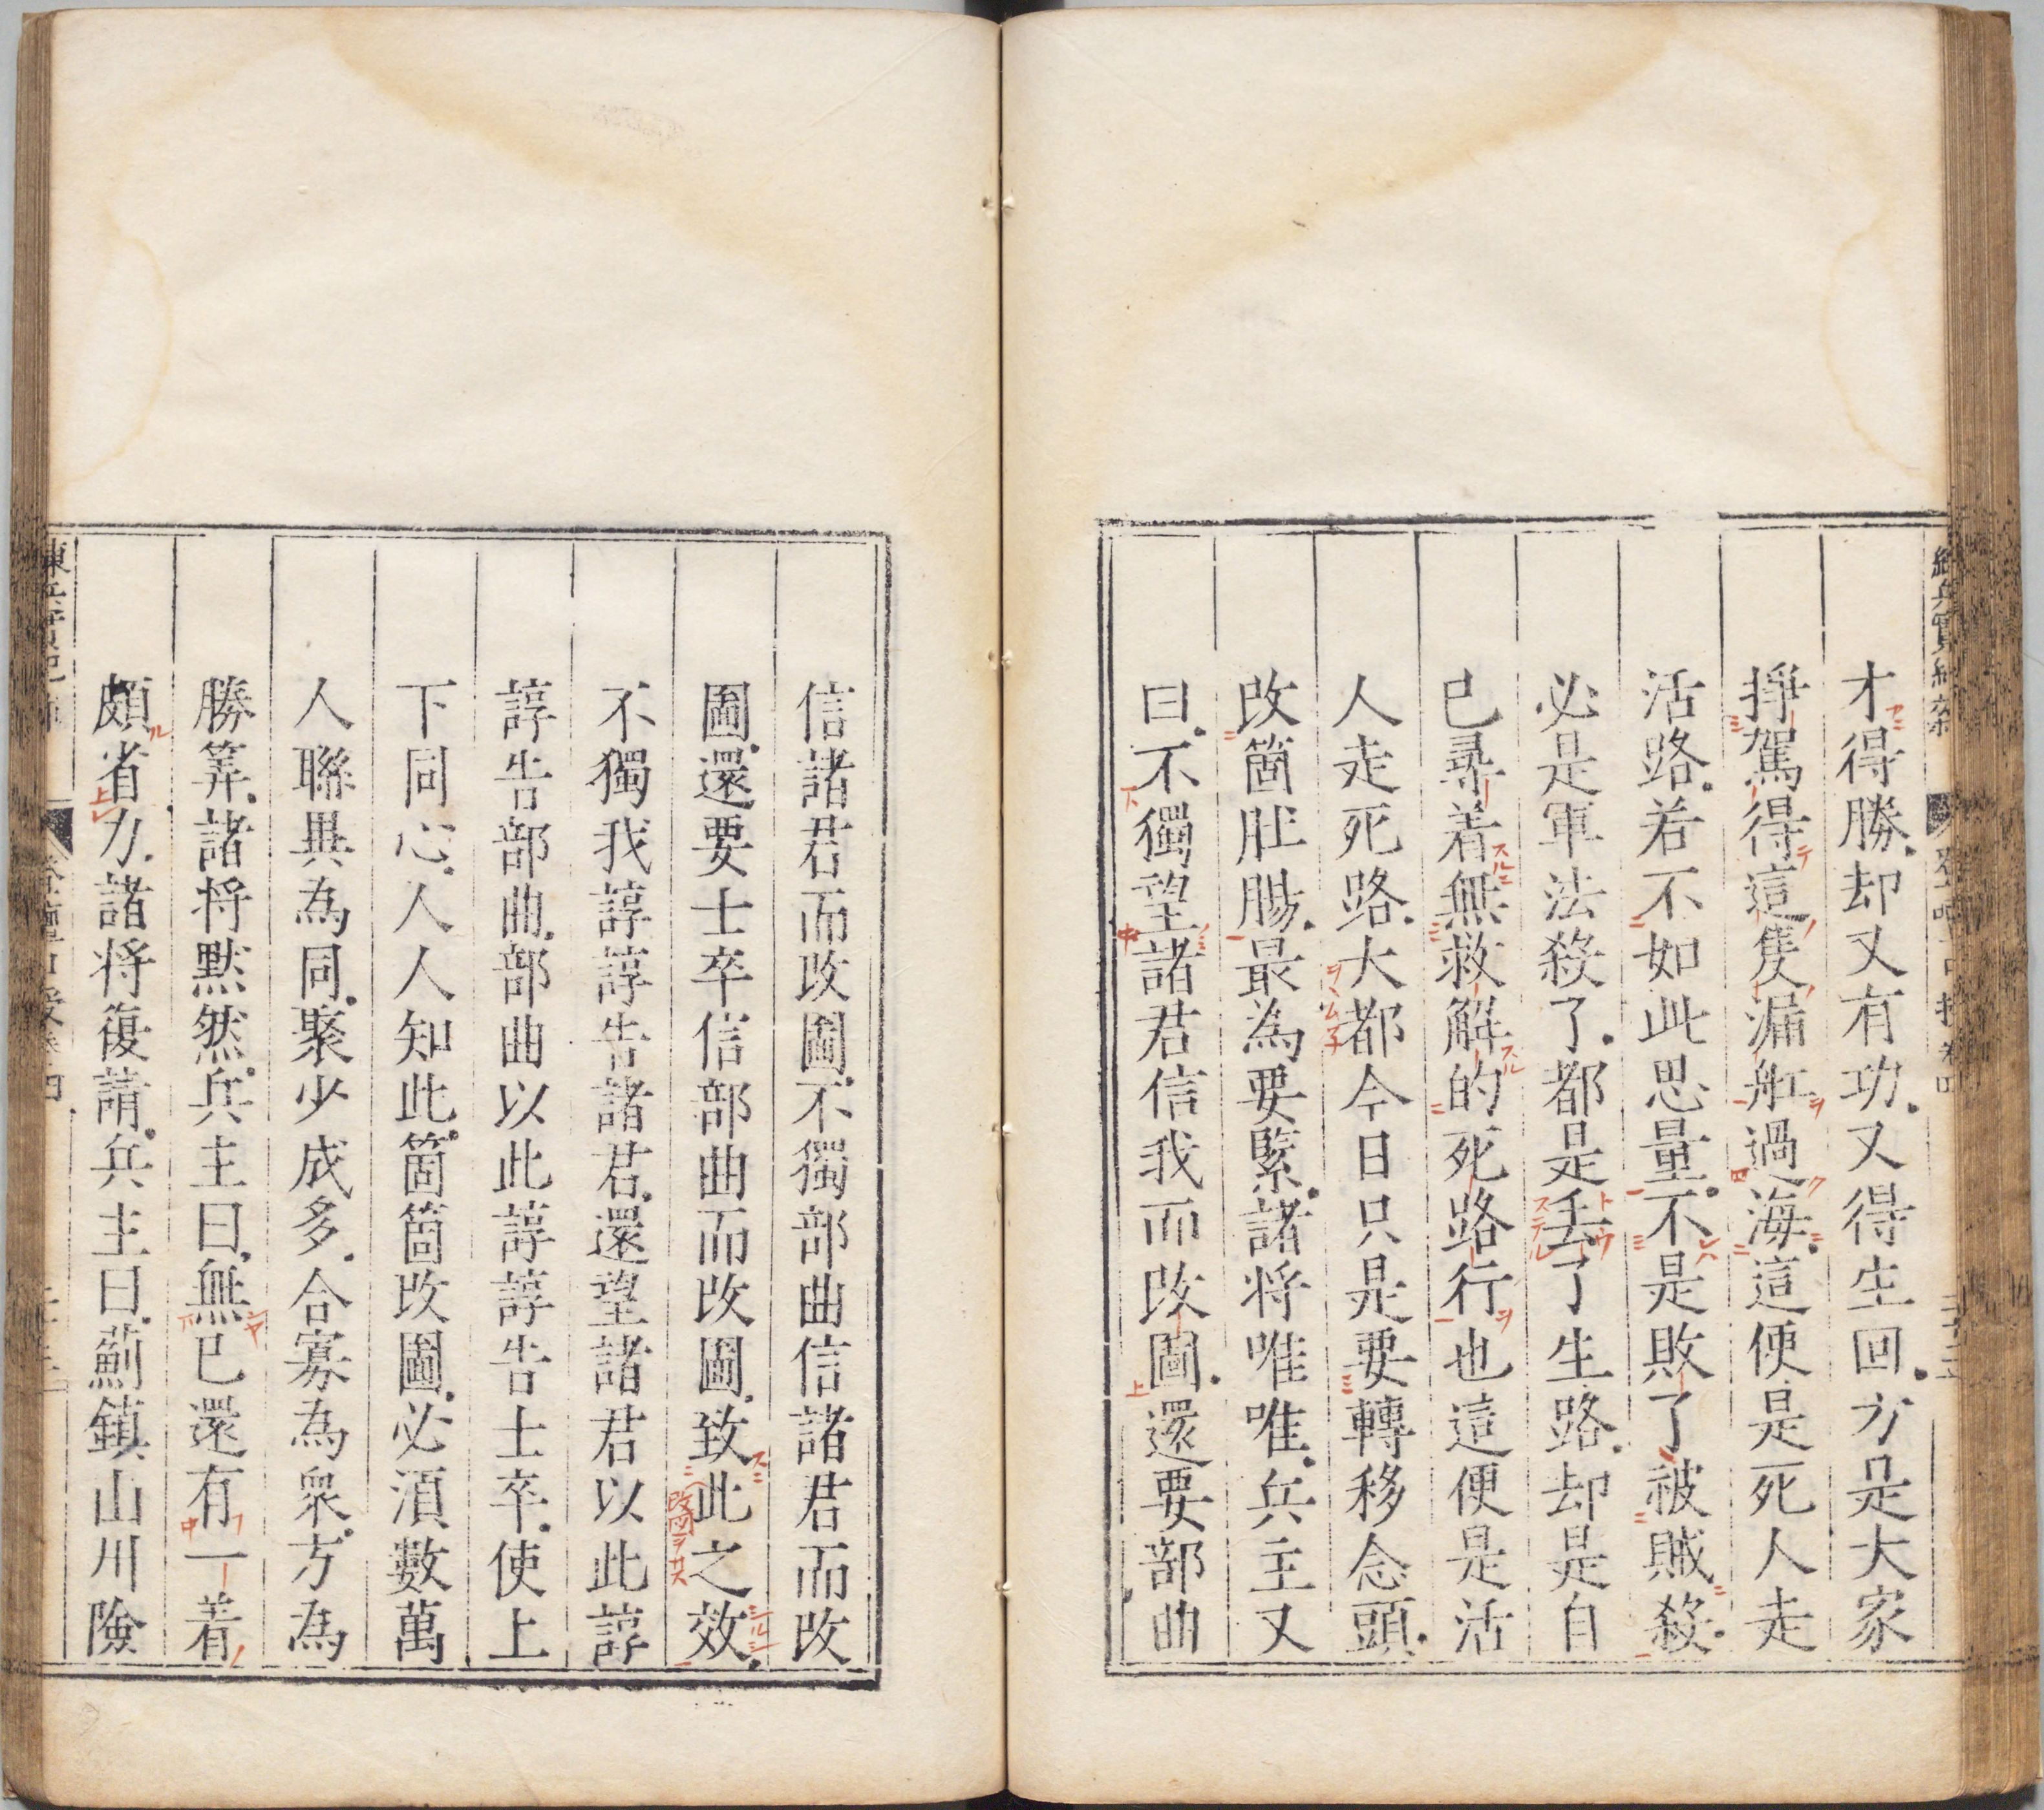 才得勝却又有功又得生回方是大家
掙駕得這隻漏舡過海這便是死人走
活路若不如此思量不是敗了被賊殺
必是軍法殺了都是丢了生路却是自
已尋着無救解的死路行也這便是活
人走死路大都今日只是要轉移念頭
改箇肚腸最為要緊諸将唯唯兵主又
曰不獨望諸君信我而改圖還要部曲
信諸君而改圖不獨部曲信諸君而改
圖還要士卒信部曲而改圖致此之效
不獨我諄諄告諸君還望諸君以此諄
諄告部曲部曲以此諄諄告士卒使上
下同心人人知此箇箇改圖必須數萬
人聯異為同聚少成多合寡為衆方為
勝筭諸将默然兵主曰無已還有一着
頗省力諸将復請兵主曰薊鎮山川險